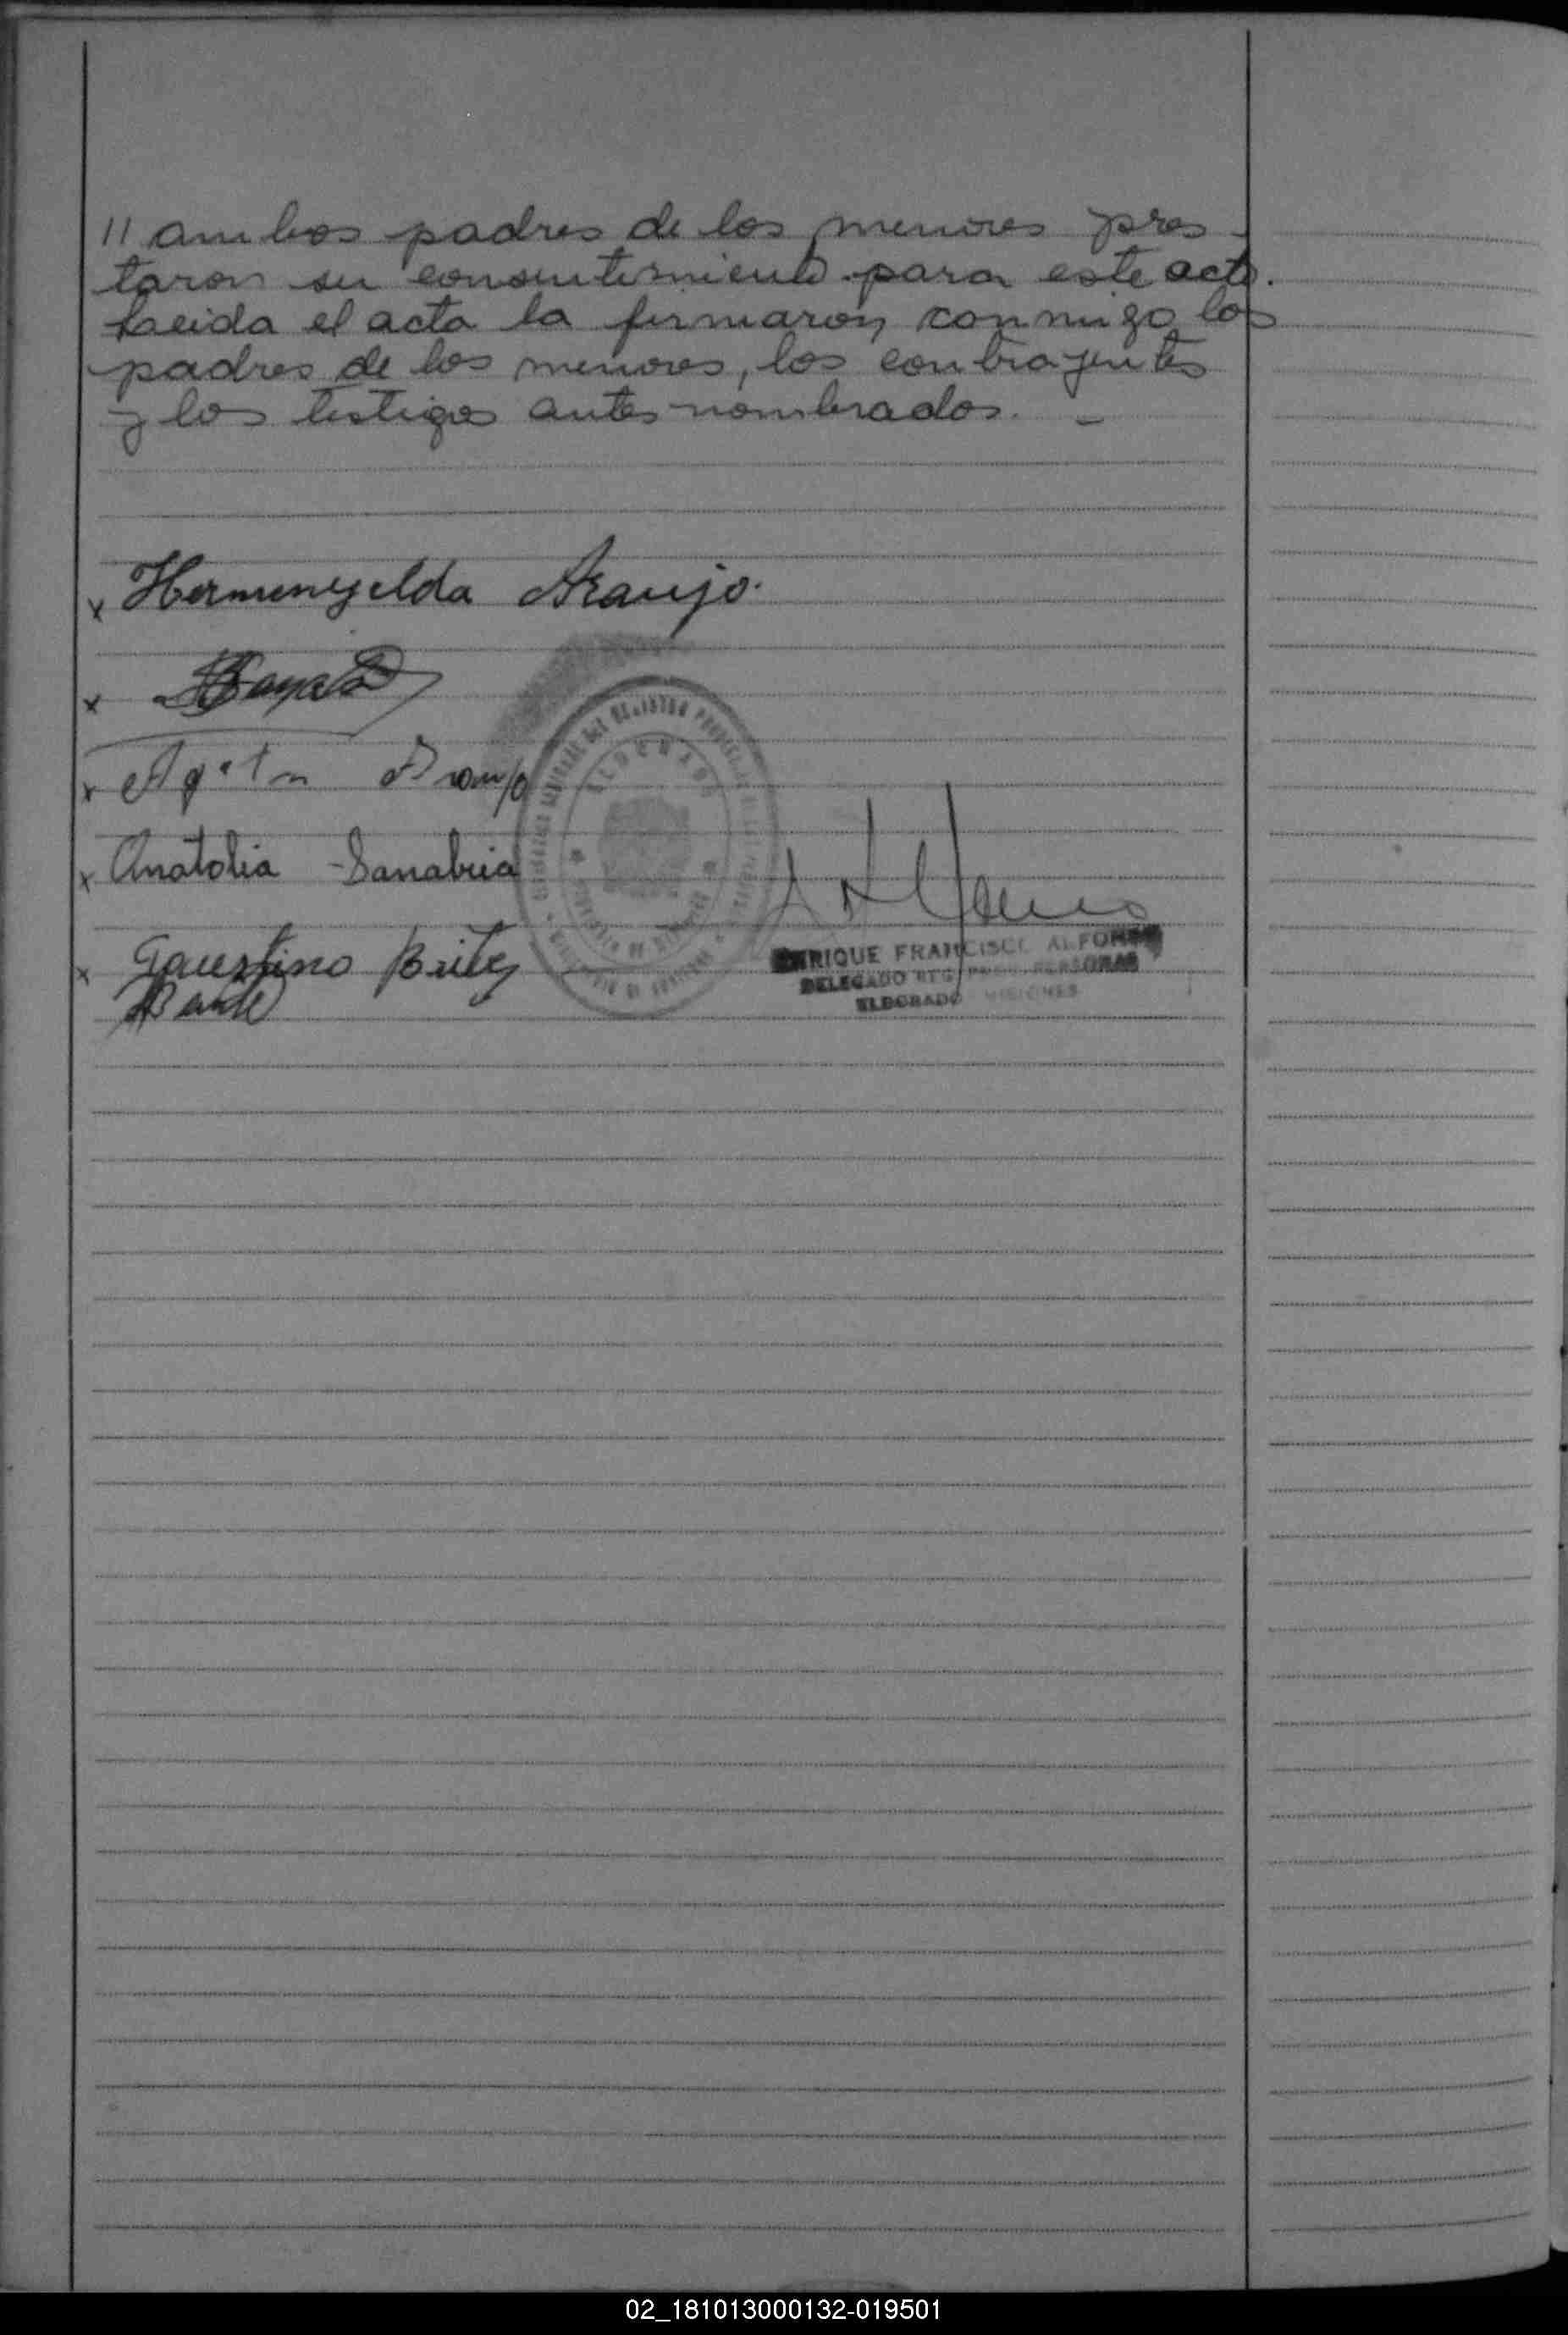 // ambos padres de los menores pres-
taron su consentimiento para este acto.
Leida el acta la firmaron conmigo los
padres de los menores, los contrayentes
y los testigos antes nombrados. -
x Hermenegilda Araujo.
x
x Agustin Araujo
x Anatolia Sanabria
x Faustino Britez
ELDORADO
ENRIQUE FRANCISCO ALFONSO
DELEGADO REG. PROV. PERSONAS
ELDORADO MISIONES
02_181013000132-019501